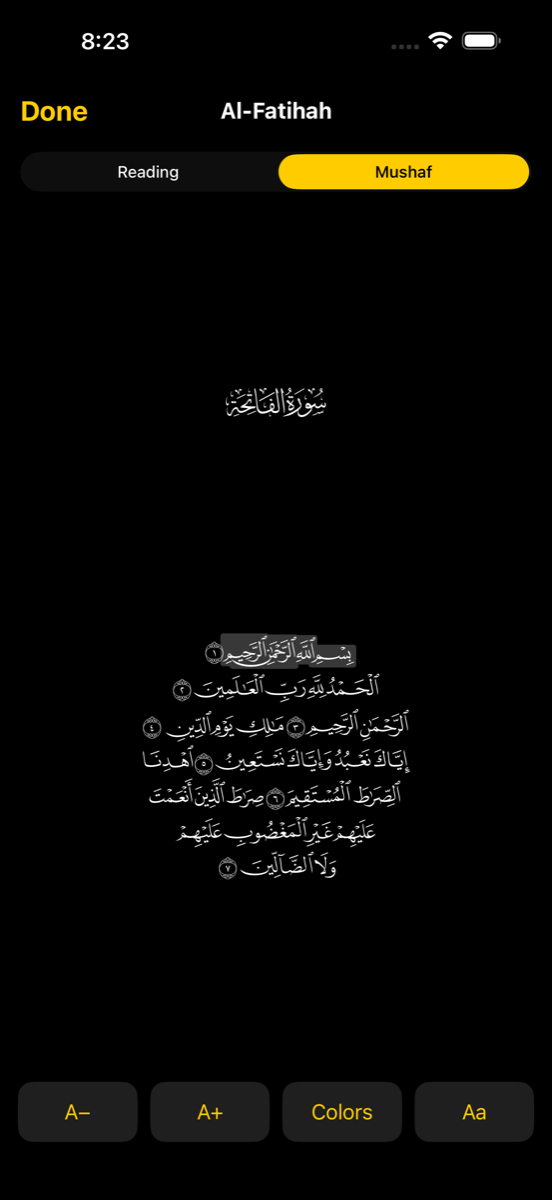 8:23
Done
Al-Fatihah
Reading
Mushaf
سُورَةُ الفَاتِحَةِ
بِسْمِ ٱللَّهِ ٱلرَّحْمَٰنِ ٱلرَّحِيمِ ١
ٱلْحَمْدُ لِلَّهِ رَبِّ ٱلْعَٰلَمِينَ ٢
ٱلرَّحْمَٰنِ ٱلرَّحِيمِ ٣ مَٰلِكِ يَوْمِ ٱلدِّينِ ٤
إِيَّاكَ نَعْبُدُ وَإِيَّاكَ نَسْتَعِينُ ٥ ٱهْدِنَا
ٱلصِّرَٰطَ ٱلْمُسْتَقِيمَ ٦ صِرَٰطَ ٱلَّذِينَ أَنْعَمْتَ
عَلَيْهِمْ غَيْرِ ٱلْمَغْضُوبِ عَلَيْهِمْ
وَلَا ٱلضَّآلِّينَ ٧
A−
A+
Colors
Aa